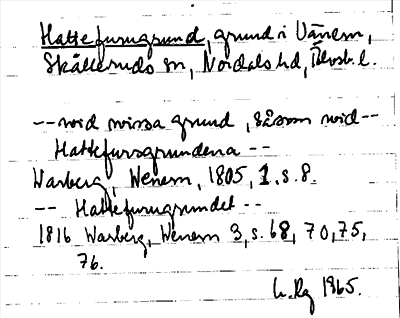 Hattefurugrund, grund i Vänern,
Skålleruds sn, Nordals hd, Älvsb. l.
-- wid wissa grund, såsom wid --
Hattefursgrundena --
Warberg, Wenern, 1805, 1. s. 8.
-- Hattefurugrundet --
1816 Warberg, Wenern 3, s. 68, 70, 75,
76.
1965.